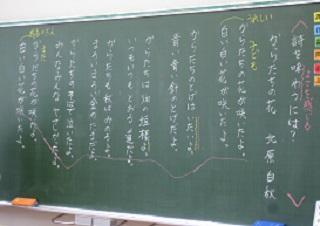 詩を味わうには?
からたちの花 北原 白秋
うれしい
からたちの花が咲いたよ。
白い白い花が咲いたよ。
からたちのとげはいたいよ。
青い青い針のとげだよ。
からたちは畑の垣根よ。
いつもいつもとおる道だよ。
からたちも秋はみのるよ。
まろいまろい金のたまだよ。
からたちのそばで泣いたよ。
みんなみんなやさしかったよ。
からたちの花が咲いたよ。
白い白い花が咲いたよ。